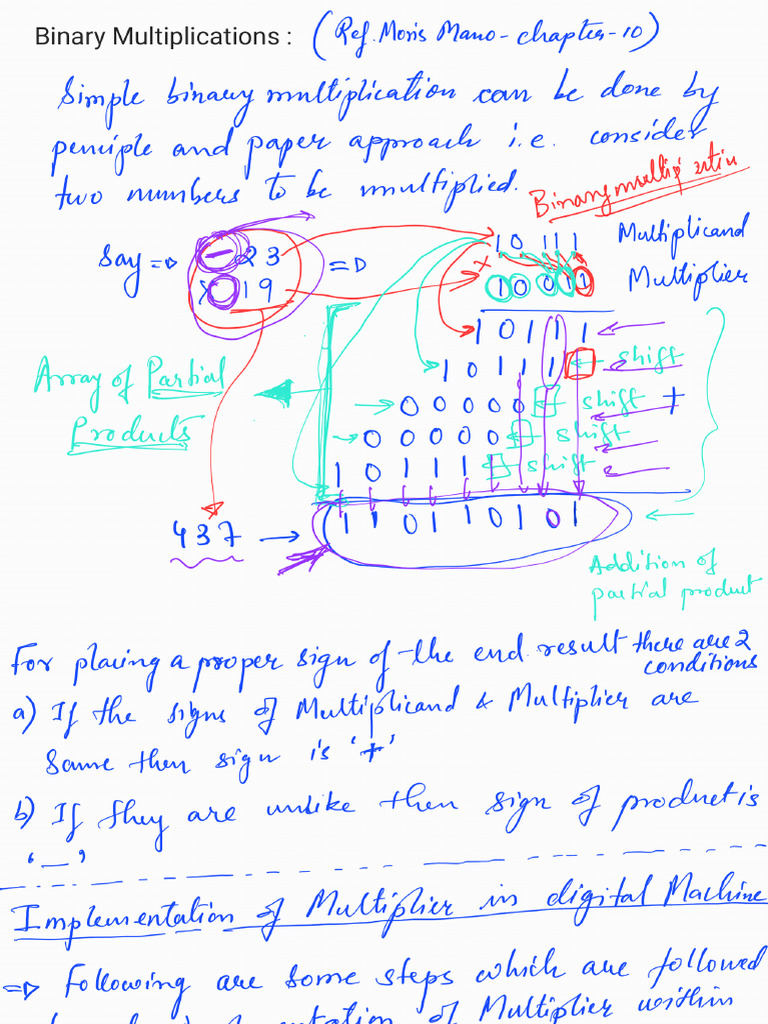 Binary Multiplications : (Ref. Moris Mano - chapter-10)
Simple binary multiplication can be done by
penciple and paper approach i.e. consider
two numbers to be multiplied.
Binary
say => - 23 => 1 0 1 1 1 Multiplicand
x 19 x 1 0 0 1 1 Multiplier
1 0 1 1 1
1 0 1 1 1 shift
0 0 0 0 0 shift +
0 0 0 0 0 shift
1 0 1 1 1 shift
Array of Partial
Products
437 → 1 1 0 1 1 0 1 0 1
Addition of
partial product
For placing a proper sign of the end result there are 2
conditions
a) If the signs of Multiplicand & Multiplier are
same then sign is '+'
b) If they are unlike then sign of product is
'—'
Implementation of Multiplier in digital Machine
=> Following are some steps which are followed
of Multiplier within